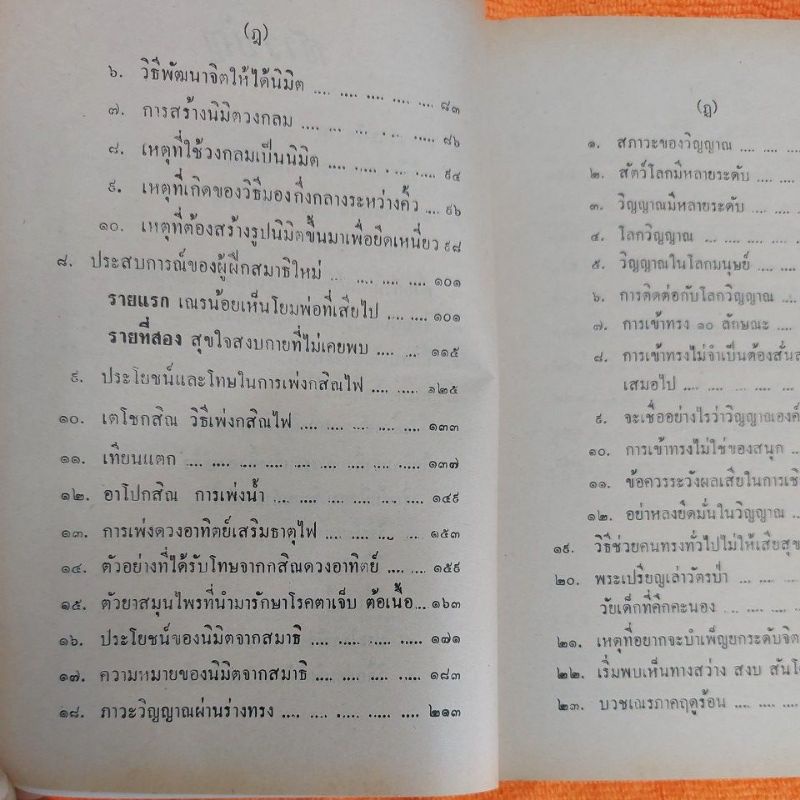 (ฎ)
๖. วิธีพัฒนาจิตให้ได้นิมิต .... .... .... .... .... ๘๓
๗. การสร้างนิมิตวงกลม .... ... ... .... ..... ๘๖
๘. เหตุที่ใช้วงกลมเป็นนิมิต .... .... .... .... ๙๔
๙. เหตุที่เกิดของวิธีมองกึ่งกลางระหว่างคิ้ว .... ๙๖
๑๐. เหตุที่ต้องสร้างรูปนิมิตขึ้นมาเพื่อยึดเหนี่ยว ๙๘
๘. ประสบการณ์ของผู้ฝึกสมาธิใหม่ .... .... .... .... ๑๐๑
รายแรก เณรน้อยเห็นโยมพ่อที่เสียไป .... .... ๑๐๑
รายที่สอง สุขใจสงบกายที่ไม่เคยพบ .... .... ๑๑๕
๙. ประโยชน์และโทษในการเพ่งกสิณไฟ .... .... ๑๒๕
๑๐. เตโชกสิณ วิธีเพ่งกสิณไฟ .... .... .... .... ๑๓๓
๑๑. เทียนแตก .... .... .... .... .... .... .... ๑๓๗
๑๒. อาโปกสิณ การเพ่งน้ำ .... .... .... .... .... ๑๔๙
๑๓. การเพ่งดวงอาทิตย์เสริมธาตุไฟ .... .... .... .... ๑๕๓
๑๔. ตัวอย่างที่ได้รับโทษจากกสิณดวงอาทิตย์ .... .... ๑๕๙
๑๕. ตัวยาสมุนไพรที่นำมารักษาโรคตาเจ็บ ต้อเนื้อ... ๑๖๓
๑๖. ประโยชน์ของนิมิตจากสมาธิ .... .... .... .... ๑๗๑
๑๗. ความหมายของนิมิตจากสมาธิ .... .... .... .... ๑๘๓
๑๘. ภาวะวิญญาณผ่านร่างทรง .... .... .... .... .... ๒๑๓
(ฏ)
๑. สภาวะของวิญญาณ .... .... ....
๒. สัตว์โลกมีหลายระดับ .... ....
๓. วิญญาณมีหลายระดับ .... ....
๔. โลกวิญญาณ ... .... .... ....
๕. วิญญาณในโลกมนุษย์ .... ....
๖. การติดต่อกับโลกวิญญาณ .... ..
๗. การเข้าทรง ๑๐ ลักษณะ .... ....
๘. การเข้าทรงไม่จำเป็นต้องสั่น
เสมอไป .... .... .... .... ....
๙. จะเชื่ออย่างไรว่าวิญญาณองค์
๑๐. การเข้าทรงไม่ใช่ของสนุก .... ..
๑๑. ข้อควรระวังผลเสียในการเชิ
๑๒. อย่าหลงยึดมั่นในวิญญาณ .... ..
๑๙. วิธีช่วยคนทรงทั่วไปไม่ให้เสียสุข
๒๐. พระเปรียญเล่าวัตรป่า .... .... ....
วัยเด็กที่คึกคะนอง .... .... ....
๒๑. เหตุที่อยากจะบำเพ็ญยกระดับจิต
๒๒. เริ่มพบเห็นทางสว่าง สงบ สันโ
๒๓. บวชเณรภาคฤดูร้อน .... .... ....